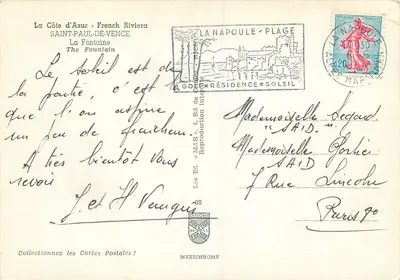 La Côte d'Azur - French Riviera
SAINT-PAUL-DE-VENCE
La Fontaine
The Fountain
LA NAPOULE - PLAGE
GOLF ★ RÉSIDENCE ★ SOLEIL
LA NAPOULE
0,20
Le soleil est de
la partie, c'est là
que l'on aspire
un peu de fraîcheur
A très bientôt vous
revoir
J. et H.
Les Éd. "MAR"
Reproduction
Mademoiselle Legard
"S.A.I.D"
Mademoiselle
S.A.I.D
7 Rue Lincoln
Paris
Collectionnez les Cartes Postales !
MEXICHROME